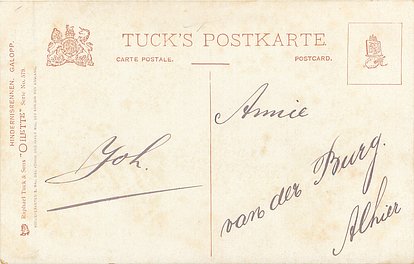 TUCK'S POSTKARTE.
CARTE POSTALE.
POSTCARD.
Joh.
Annie
van der Burg.
Alhier
HINDERNISSRENNEN. GALOPP.
Raphael Tuck & Sons' "OILETTE" Serie No. 573